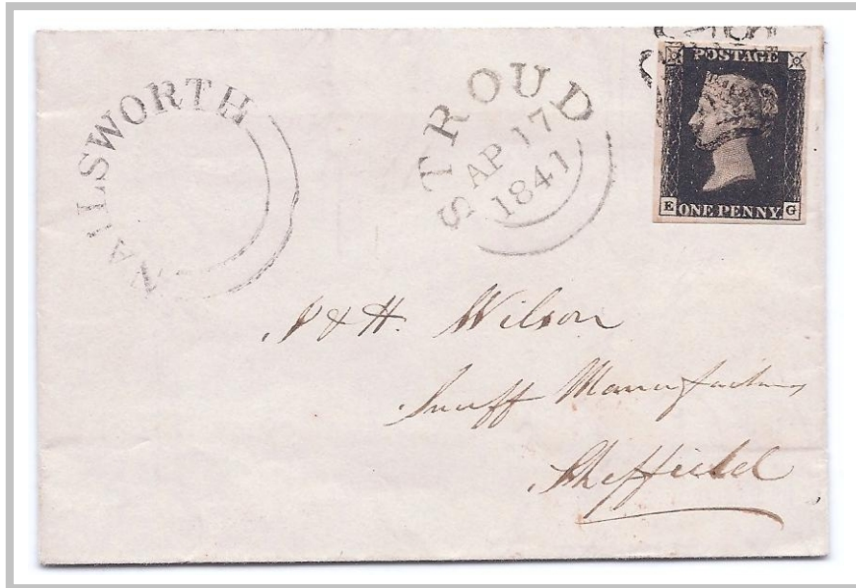 NAILSWORTH
STROUD
AP 17
1841
POSTAGE
E ONE PENNY G
J & H. Wilson
Snuff Manufacturers
Sheffield